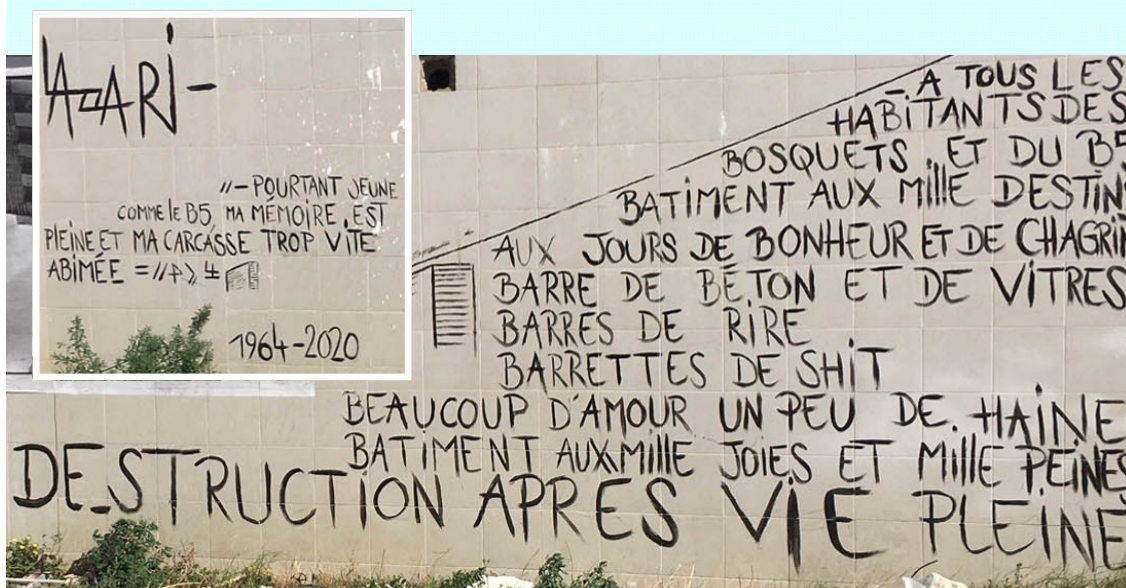 – POURTANT JEUNE
COMME le B5, MA MÉMOIRE, EST
PLEINE ET MA CARCASSE TROP VITE
ABIMÉE
1964-2020
– A TOUS LES
HABITANTS DES
BOSQUETS, ET DU B5
BATIMENT AUX MILLE DESTINS
AUX JOURS DE BONHEUR ET DE CHAGRIN
BARRE DE BÉTON ET DE VITRES
BARRES DE RIRE
BARRETTES DE SHIT
BEAUCOUP D'AMOUR UN PEU DE HAINE
BATIMENT AUX MIllE JOIES ET MIllE PEINES
DESTRUCTION APRES VIE PLEINE